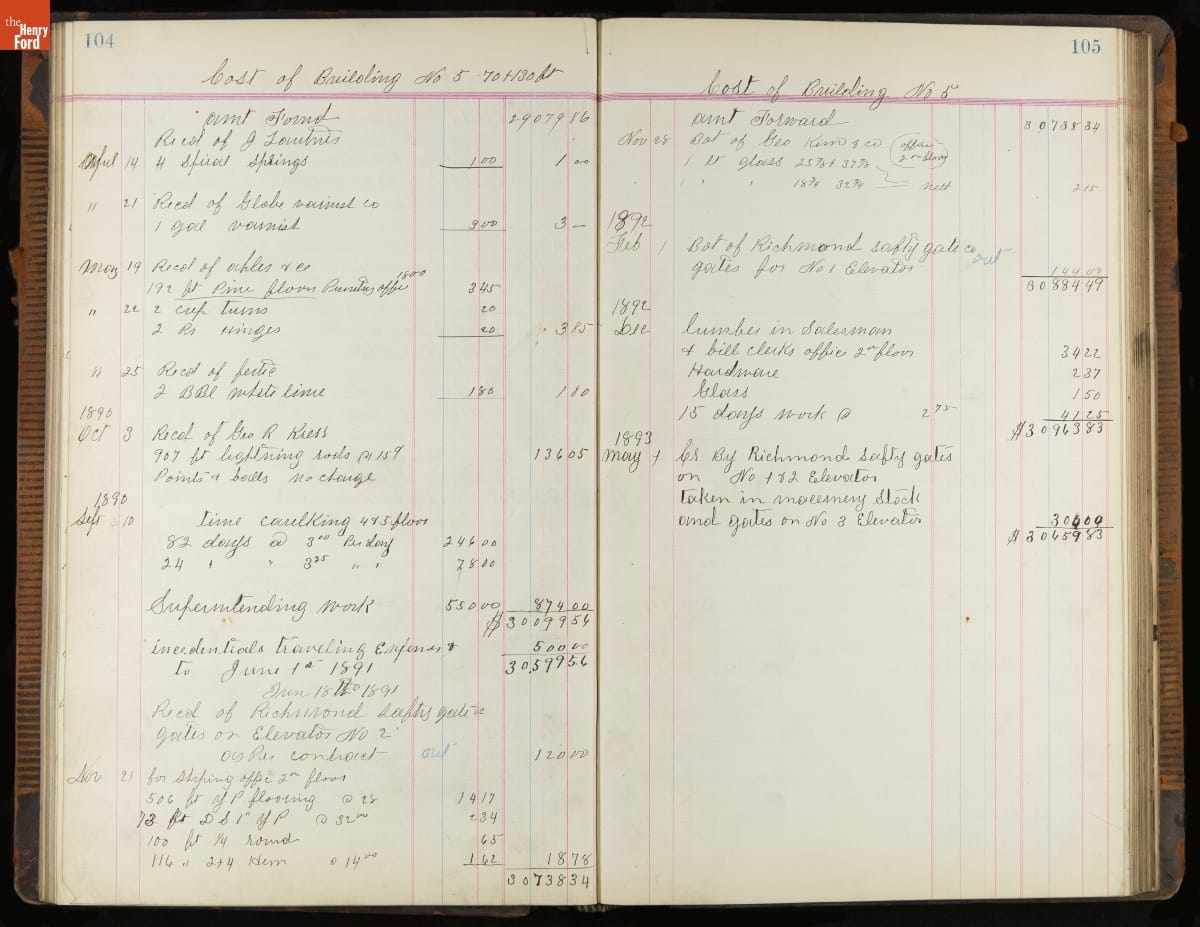 the
Henry
Ford
104
Cost of Building No 5 70+130 ft
amt Forwd 2907986
Recd of J
April 14 4 Spiral Springs 100 1 00
" 21 Recd of Globe varnist co
1 gal varnist 300 3 –
May 19 Recd of ahles & co
192 ft Pine floor offic 1800 345
" 22 2 cup turns 20
2 Pr Hinges 20 385
" 25 Recd of
2 BBl white lime 180 180
1890
Oct 3 Recd of Geo R Kress
907 ft lightning rods @ 15¢ 13605
Points & balls no charge
1890
Sept 10 time caulking 4&5 floor
82 days @ 3 00 Per day 24600
24 " " 3 25 " " 7800
Superintending work 55000 87400
$3009956
incedentials traveling Expenses & 50000
to June 1st 1891 3059956
Jun 18th 1891
Recd of Richmond Safty gate co
gates on Elevator No 2
as Per contract out 12000
Nov 21 for offic 2nd floor
506 ft YP flooring @ 28 1417
73 ft D S 1" YP @ 32 00 234
100 ft 1/4 round 65
116 " 2+4 Hem @ 14 00 162 1878
3073834
105
Cost of Building No 5
amt Forward 3073834
Nov 28 Bot of Geo & co office 2nd floor
1 lt glass 25 7/8 + 37 7/8
" " " 18 3/4 32 3/4 nett 215
1892
Feb 1 Bot of Richmond safty gate co
gates for No 1 Elevator out 14400
3088449
1892
Dec lumber in Salesman
& bill clerks office 2nd floor 3422
Hardware 237
Glass 150
15 days work @ 2 75 4125
$3096383
1893
May 1 Cr By Richmond Safty gates
on No 1 & 2 Elevator
taken in Stock
and gates on No 3 Elevator 30400
$3065983